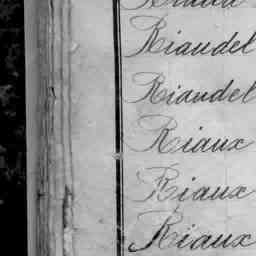 Riaudel
Riaudel
Riaux
Riaux
Riaux